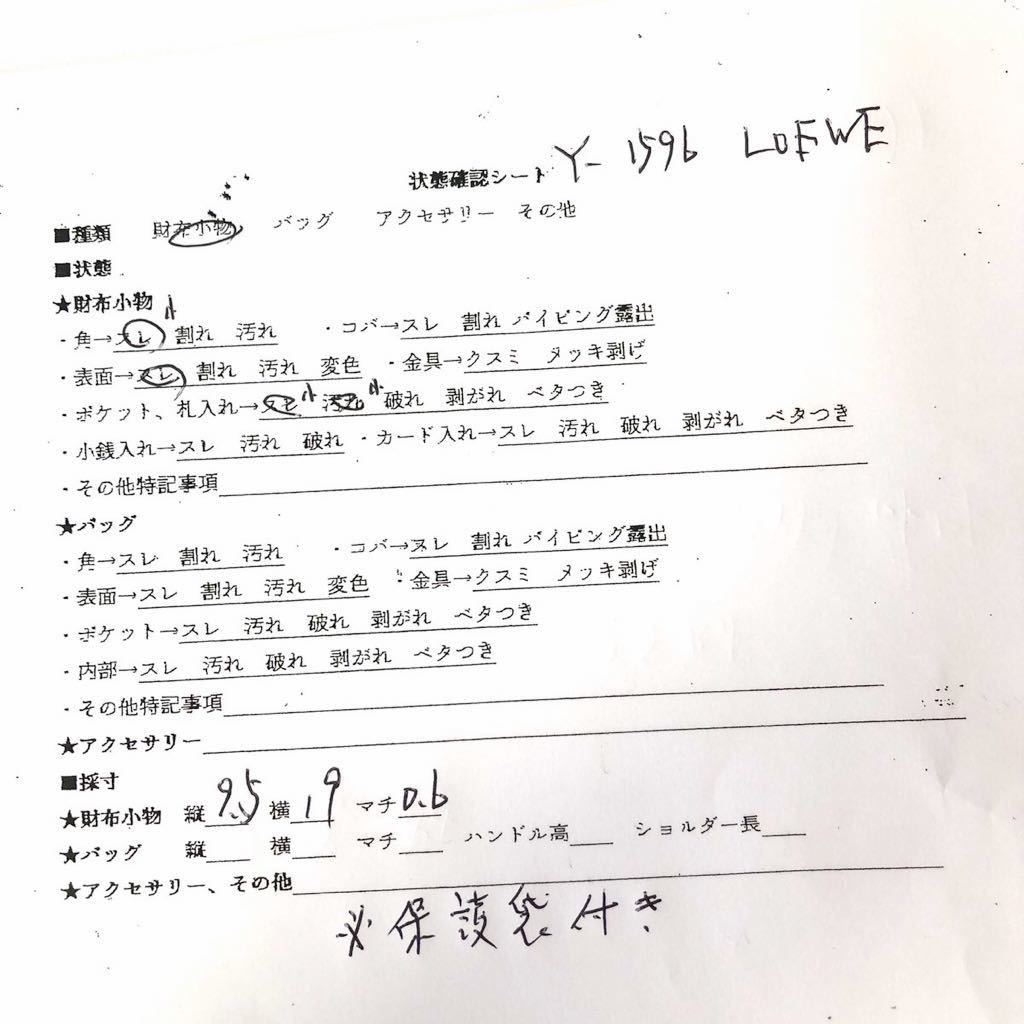 状態確認シート Y-1596 LOEWE
■種類 財布小物 バッグ アクセサリー その他
■状態
★財布小物
・角→スレ 小 割れ 汚れ ・コバ→スレ 割れ パイピング露出
・表面→スレ 割れ 汚れ 変色 ・金具→クスミ メッキ剥げ
・ポケット、札入れ→スレ 小 汚れ 小 破れ 剥がれ ベタつき
・小銭入れ→スレ 汚れ 破れ ・カード入れ→スレ 汚れ 破れ 剥がれ ベタつき
・その他特記事項
★バッグ
・角→スレ 割れ 汚れ ・コバ→スレ 割れ パイピング露出
・表面→スレ 割れ 汚れ 変色 ・金具→クスミ メッキ剥げ
・ポケット→スレ 汚れ 破れ 剥がれ ベタつき
・内部→スレ 汚れ 破れ 剥がれ ベタつき
・その他特記事項
★アクセサリー
■採寸
★財布小物 縦9.5 横19 マチ0.6
★バッグ 縦 横 マチ ハンドル高 ショルダー長
★アクセサリー、その他
※保護袋付き.